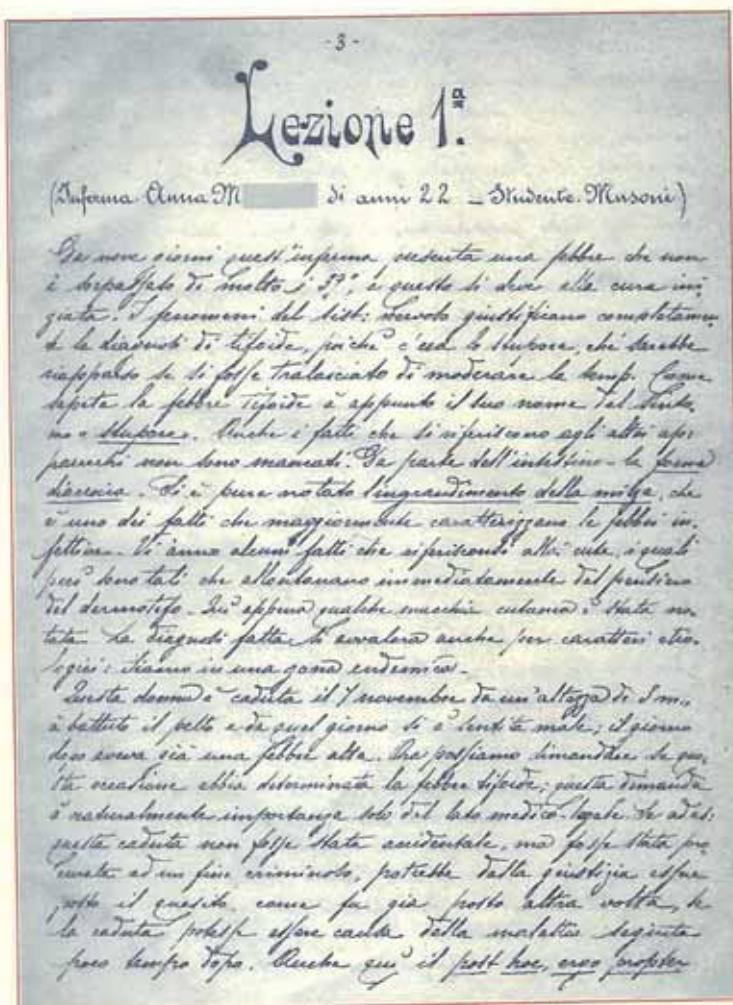 - 3 -
Lezione 1ª.
(Inferma Anna M di anni 22 - Studente Musoni)
Da nove giorni quest'inferma presenta una febbre che non
è sorpassato di molto i 37°, e questo si deve alla cura ini
ziata. I fenomeni del sist: nervoso giustificano completamen
te la diagnosi di tifoide, poichè c'era lo stupore, che sarebbe
riapparso se si fosse tralasciato di moderare la temp. Come
sapete la febbre tifoide à appunto il suo nome dal sinto
mo = stupore. Anche i fatti che si riferiscono agli altri ap
parecchi non sono mancati. Da parte dell'intestino - la forma
diarroica. Si è pure notato l'ingrandimento della milza, che
è uno dei fatti che maggiormente caratterizzano le febbri in
fettive. Vi ànno alcuni fatti che riferisconsi alla cute, i quali
però sono tali che allontanano immediatamente dal pensiero
del dermotifo. Qui appena qualche macchia cutanea è stata no
tata. La diagnosi fatta si avvalora anche per caratteri etio
logici: siamo in una zona endemica.
Questa donna è caduta il 7 novembre da un'altezza di m.,
à battuto il petto e da quel giorno si è sentita male; il giorno
dopo aveva già una febbre alta. Ora possiamo dimandare se que
sta occasione abbia determinata la febbre tifoide; questa dimanda
à naturalmente importanza solo dal lato medico-legale. Se ad es:
questa caduta non fosse stata accidentale, ma fosse stata pro
curata ad un fine criminoso, potrebbe dalla giustizia essere
posto il quesito, come fu già posto altra volta, se
la caduta potesse essere causa della malattia seguita
poco tempo dopo. Anche qui il post hoc, ergo propter